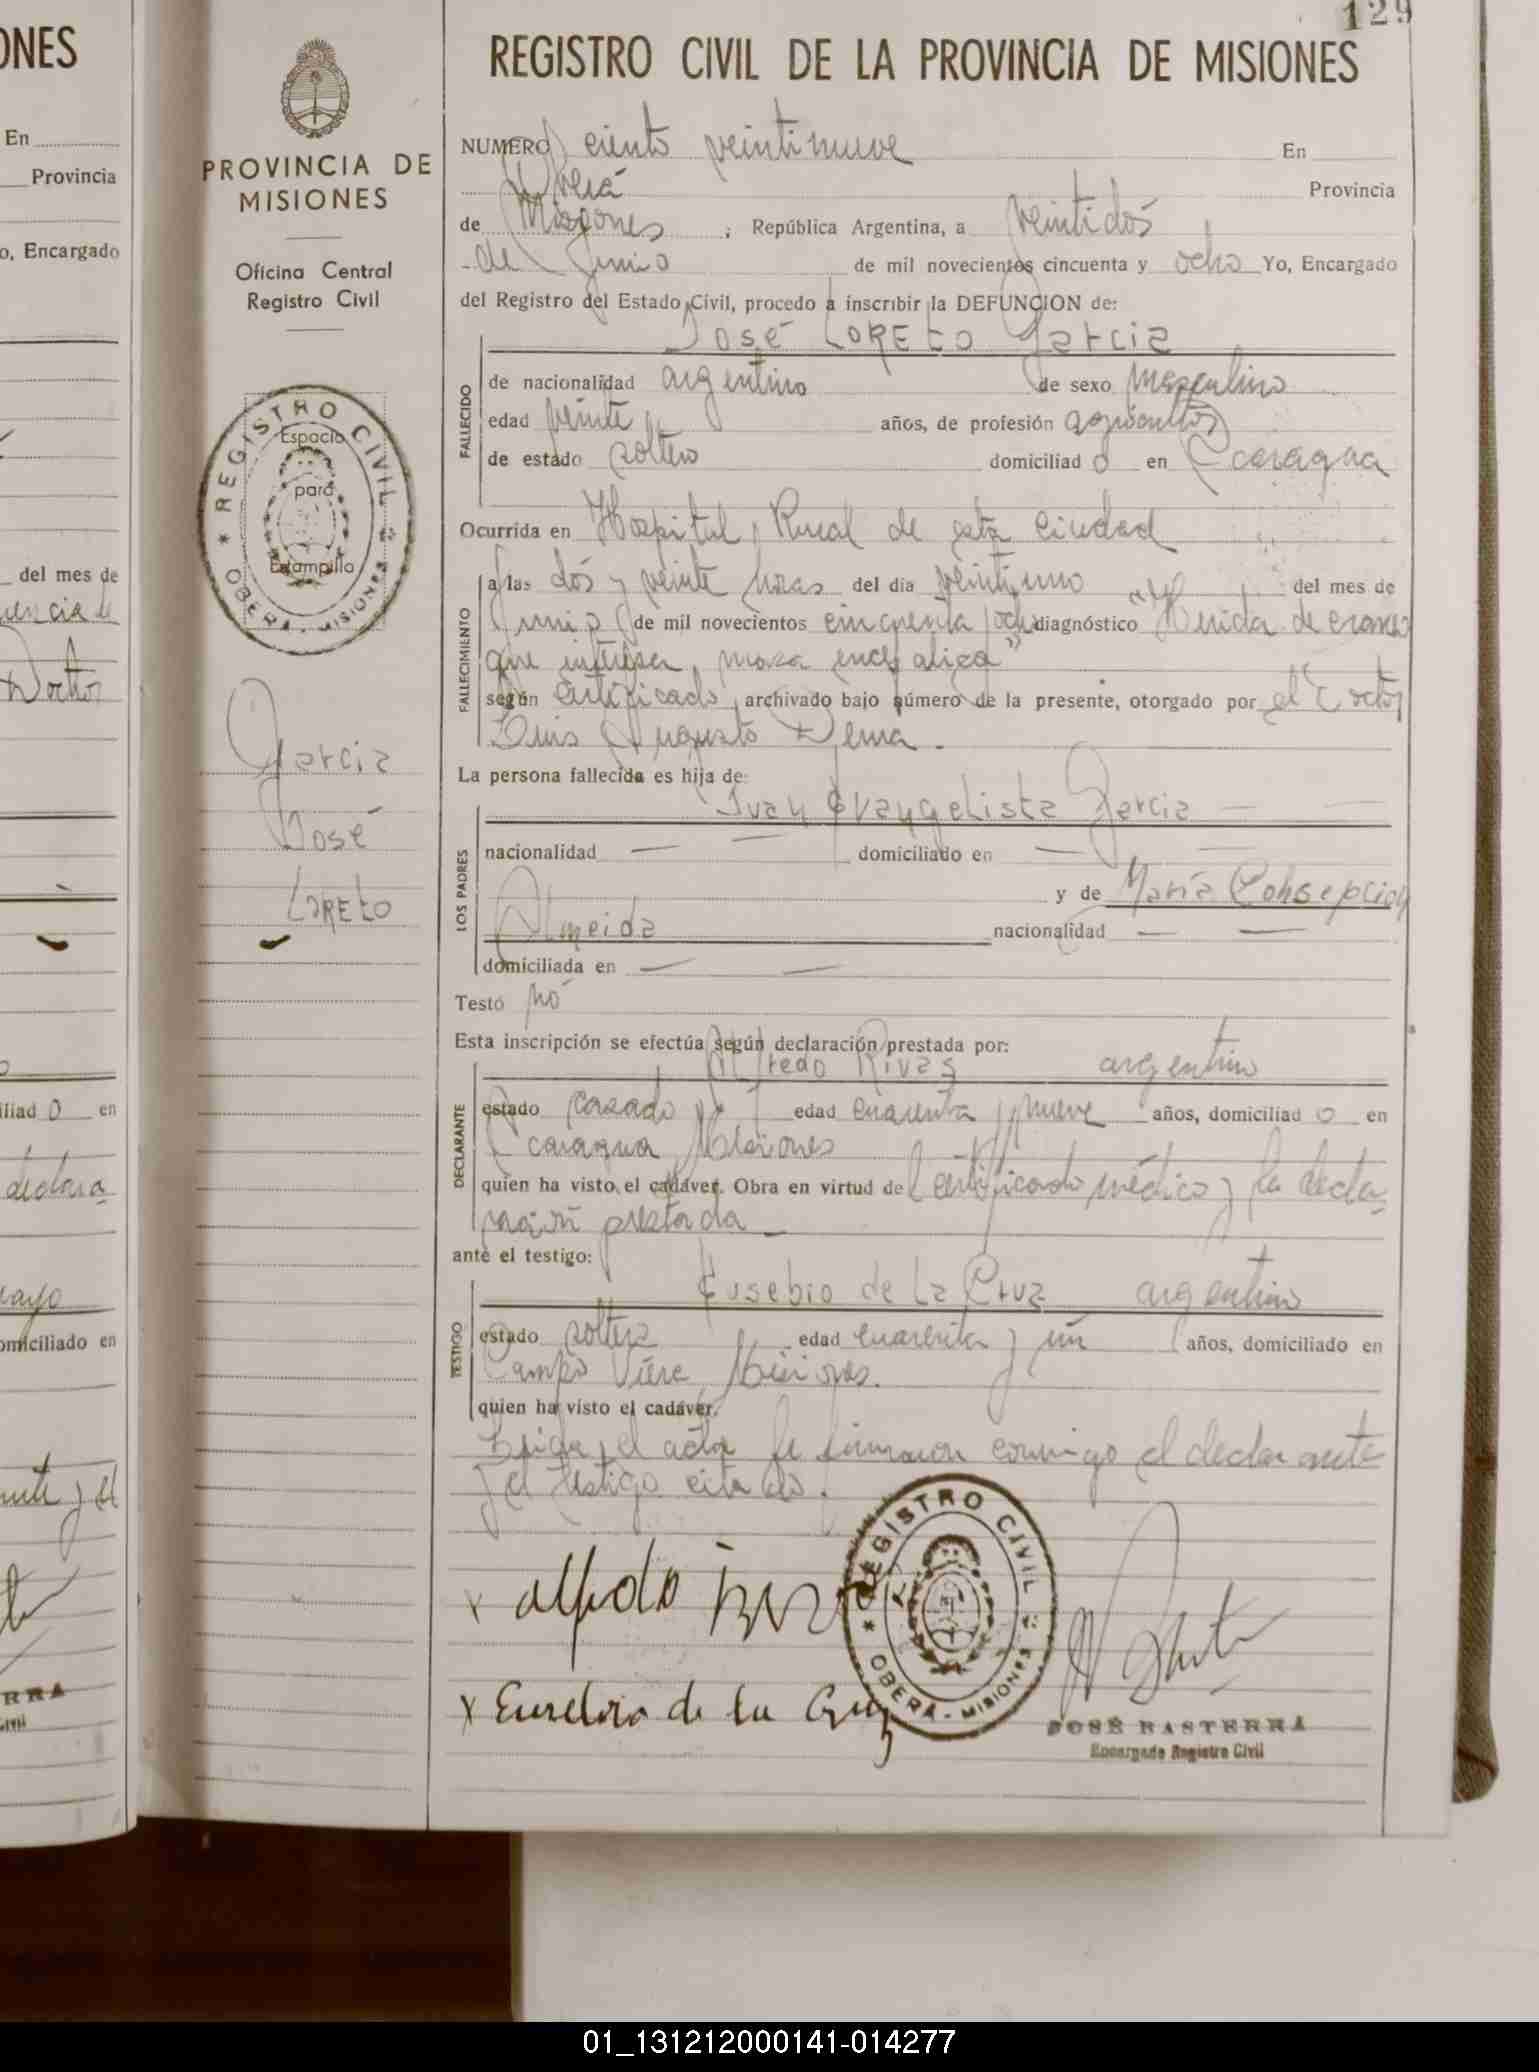 129
ONES
REGISTRO CIVIL DE LA PROVINCIA DE MISIONES
En
Provincia
o, Encargado
del mes de
Doctor
iliad o en
declara
omiciliado en
PROVINCIA DE
MISIONES
Oficina Central
Registro Civil
REGISTRO CIVIL
OBERA - MISIONES
Espacio
para
Estampilla
Garcia
José
Loreto
NUMERO ciento veintinueve En
Oberá Provincia
de Misiones ; República Argentina, a veintidós
de Junio de mil novecientos cincuenta y ocho Yo, Encargado
del Registro del Estado Civil, procedo a inscribir la DEFUNCION de:
José Loreto Garcia
FALLECIDO
de nacionalidad argentino de sexo masculino
edad veinte años, de profesión agricultor
de estado soltero domiciliad o en Acaragua
Ocurrida en Hospital Rural de esta Ciudad
FALLECIMIENTO
a las dos y veinte horas del día veintiuno del mes de
Junio de mil novecientos cincuenta y ocho diagnóstico "Herida de craneo
que interesa masa encefalica"
según certificado archivado bajo número de la presente, otorgado por el Doctor
Luis Augusto Derna.
La persona fallecida es hija de:
LOS PADRES
Juan Evangelista Garcia —
nacionalidad — — domiciliado en — —
y de María Consepcion
Almeida nacionalidad — —
domiciliada en — —
Testó nó
Esta inscripción se efectúa según declaración prestada por:
DECLARANTE
Alfredo Rivas argentino
estado casado edad cuarenta y nueve años, domiciliad o en
Acaragua Misiones
quien ha visto el cadáver. Obra en virtud del certificado médico y la decla-
ración prestada
ante el testigo:
TESTIGO
Eusebio de La Cruz argentino
estado soltero edad cuarenta y un años, domiciliado en
Campo Viera Misiones.
quien ha visto el cadáver.
Leida el acta la firmaron conmigo el declarante
y el testigo citado.
x Alfredo
REGISTRO CIVIL
OBERA - MISIONES
x Euselvio de la Cruz
JOSÉ BASTERRA
Encargado Registro Civil
01_131212000141-014277